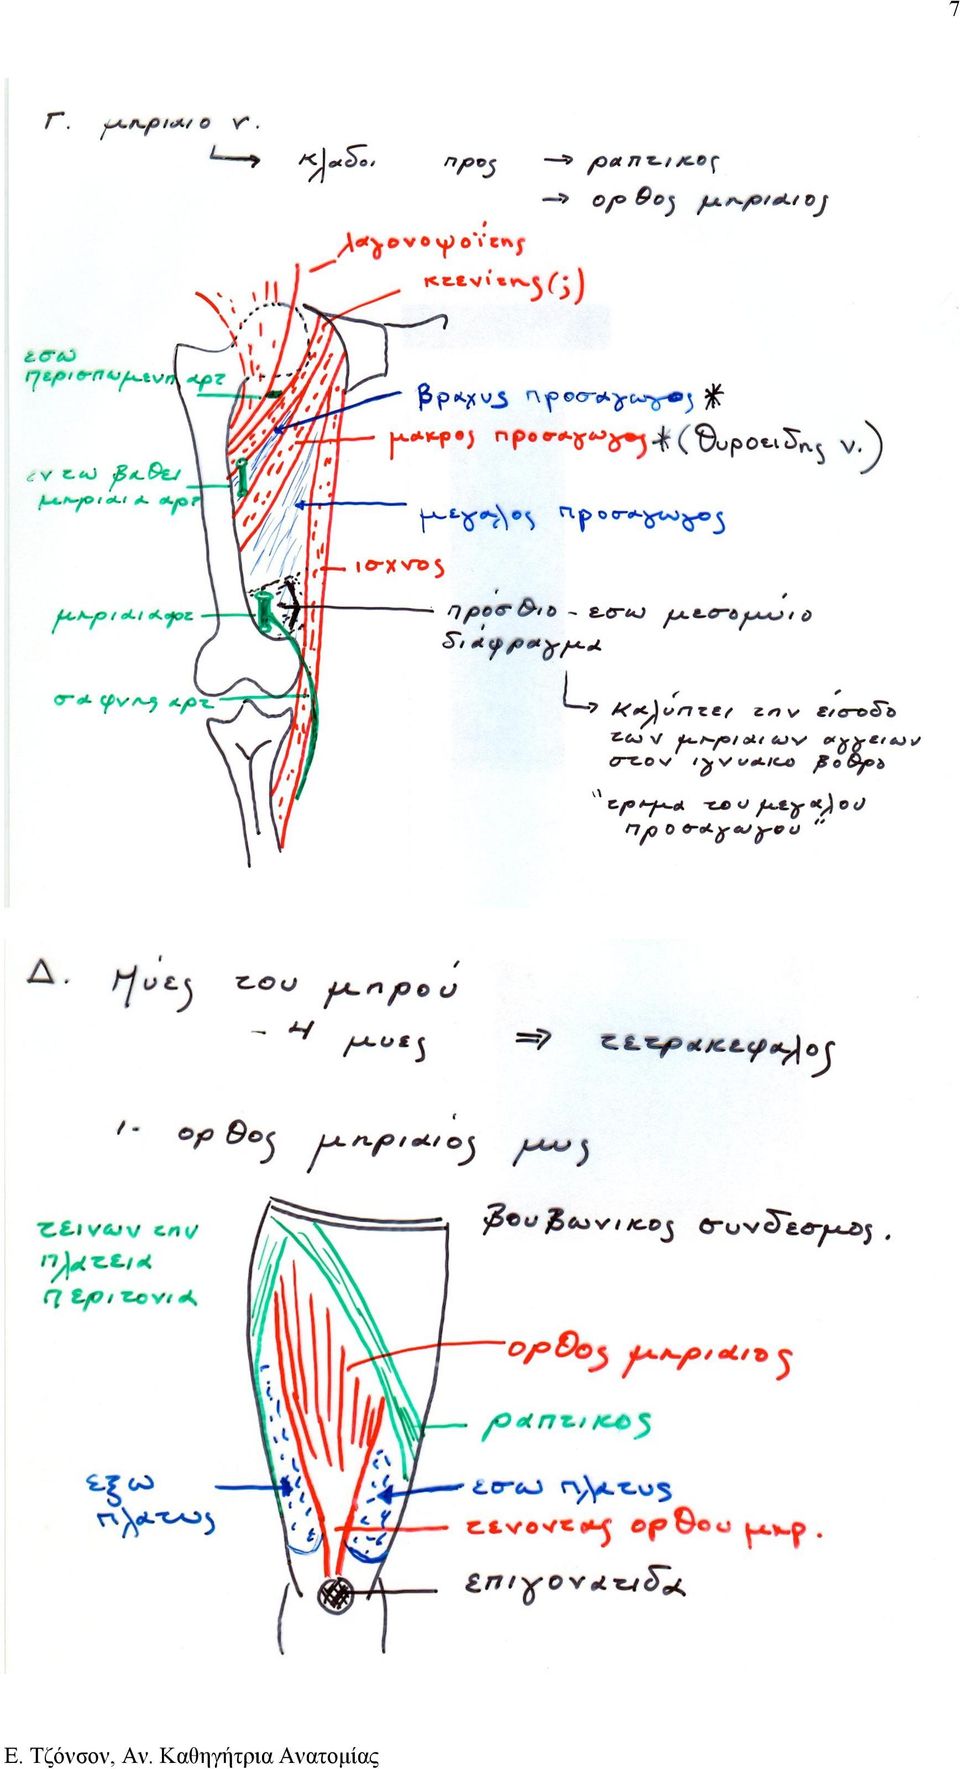 7
Γ. μηριαιο ν.
κλαδοι προς → ραπτικος
→ ορθος μηριαιος
λαγονοψοΐτης
κτενίτης(;)
εσω
περισπωμενη αρτ
βραχυς προσαγωγος *
μακρος προσαγωγος * (θυροειδης ν.)
εν τω βαθει
μηριαια αρτ
μεγαλος προσαγωγος
ισχνος
μηριαια αρτ
πρόσθιο - εσω μεσομύιο
διάφραγμα
σαφηνης αρτ
καλύπτει την είσοδο
των μηριαιων αγγειων
στον ιγνυακο βοθρο
"τρημα του μεγαλου
προσαγωγου"
Δ. Μύες του μηρού
- 4 μυες ⇒ τετρακεφαλος
1. ορθος μηριαιός μυς
τεινων την
πλατεια
περιτονια
βουβωνικος συνδεσμος.
ορθος μηριαιος
ραπτικος
εξω
πλατυς
εσω πλατυς
τενοντας ορθου μηρ.
επιγονατιδα
Ε. Τζόνσον, Αν. Καθηγήτρια Ανατομίας